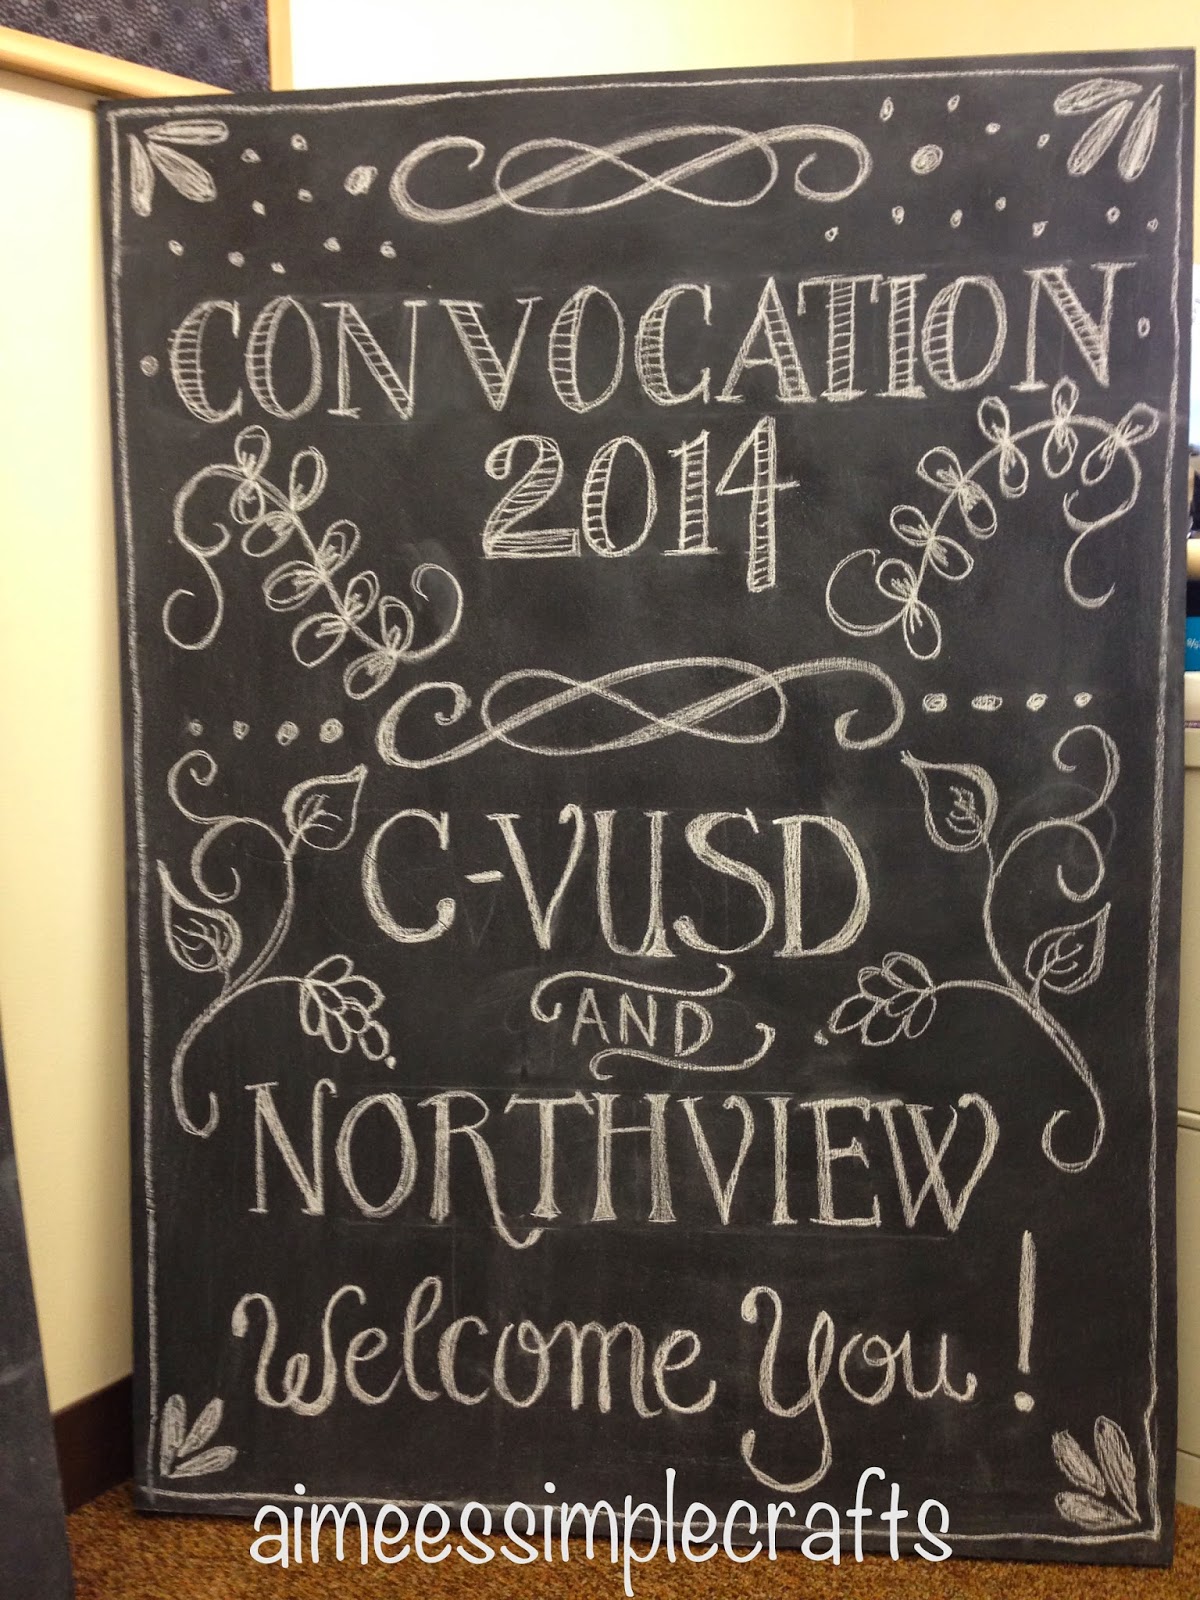 CONVOCATION
2014
C-VUSD
AND
NORTHVIEW
Welcome You!
aimeessimplecrafts